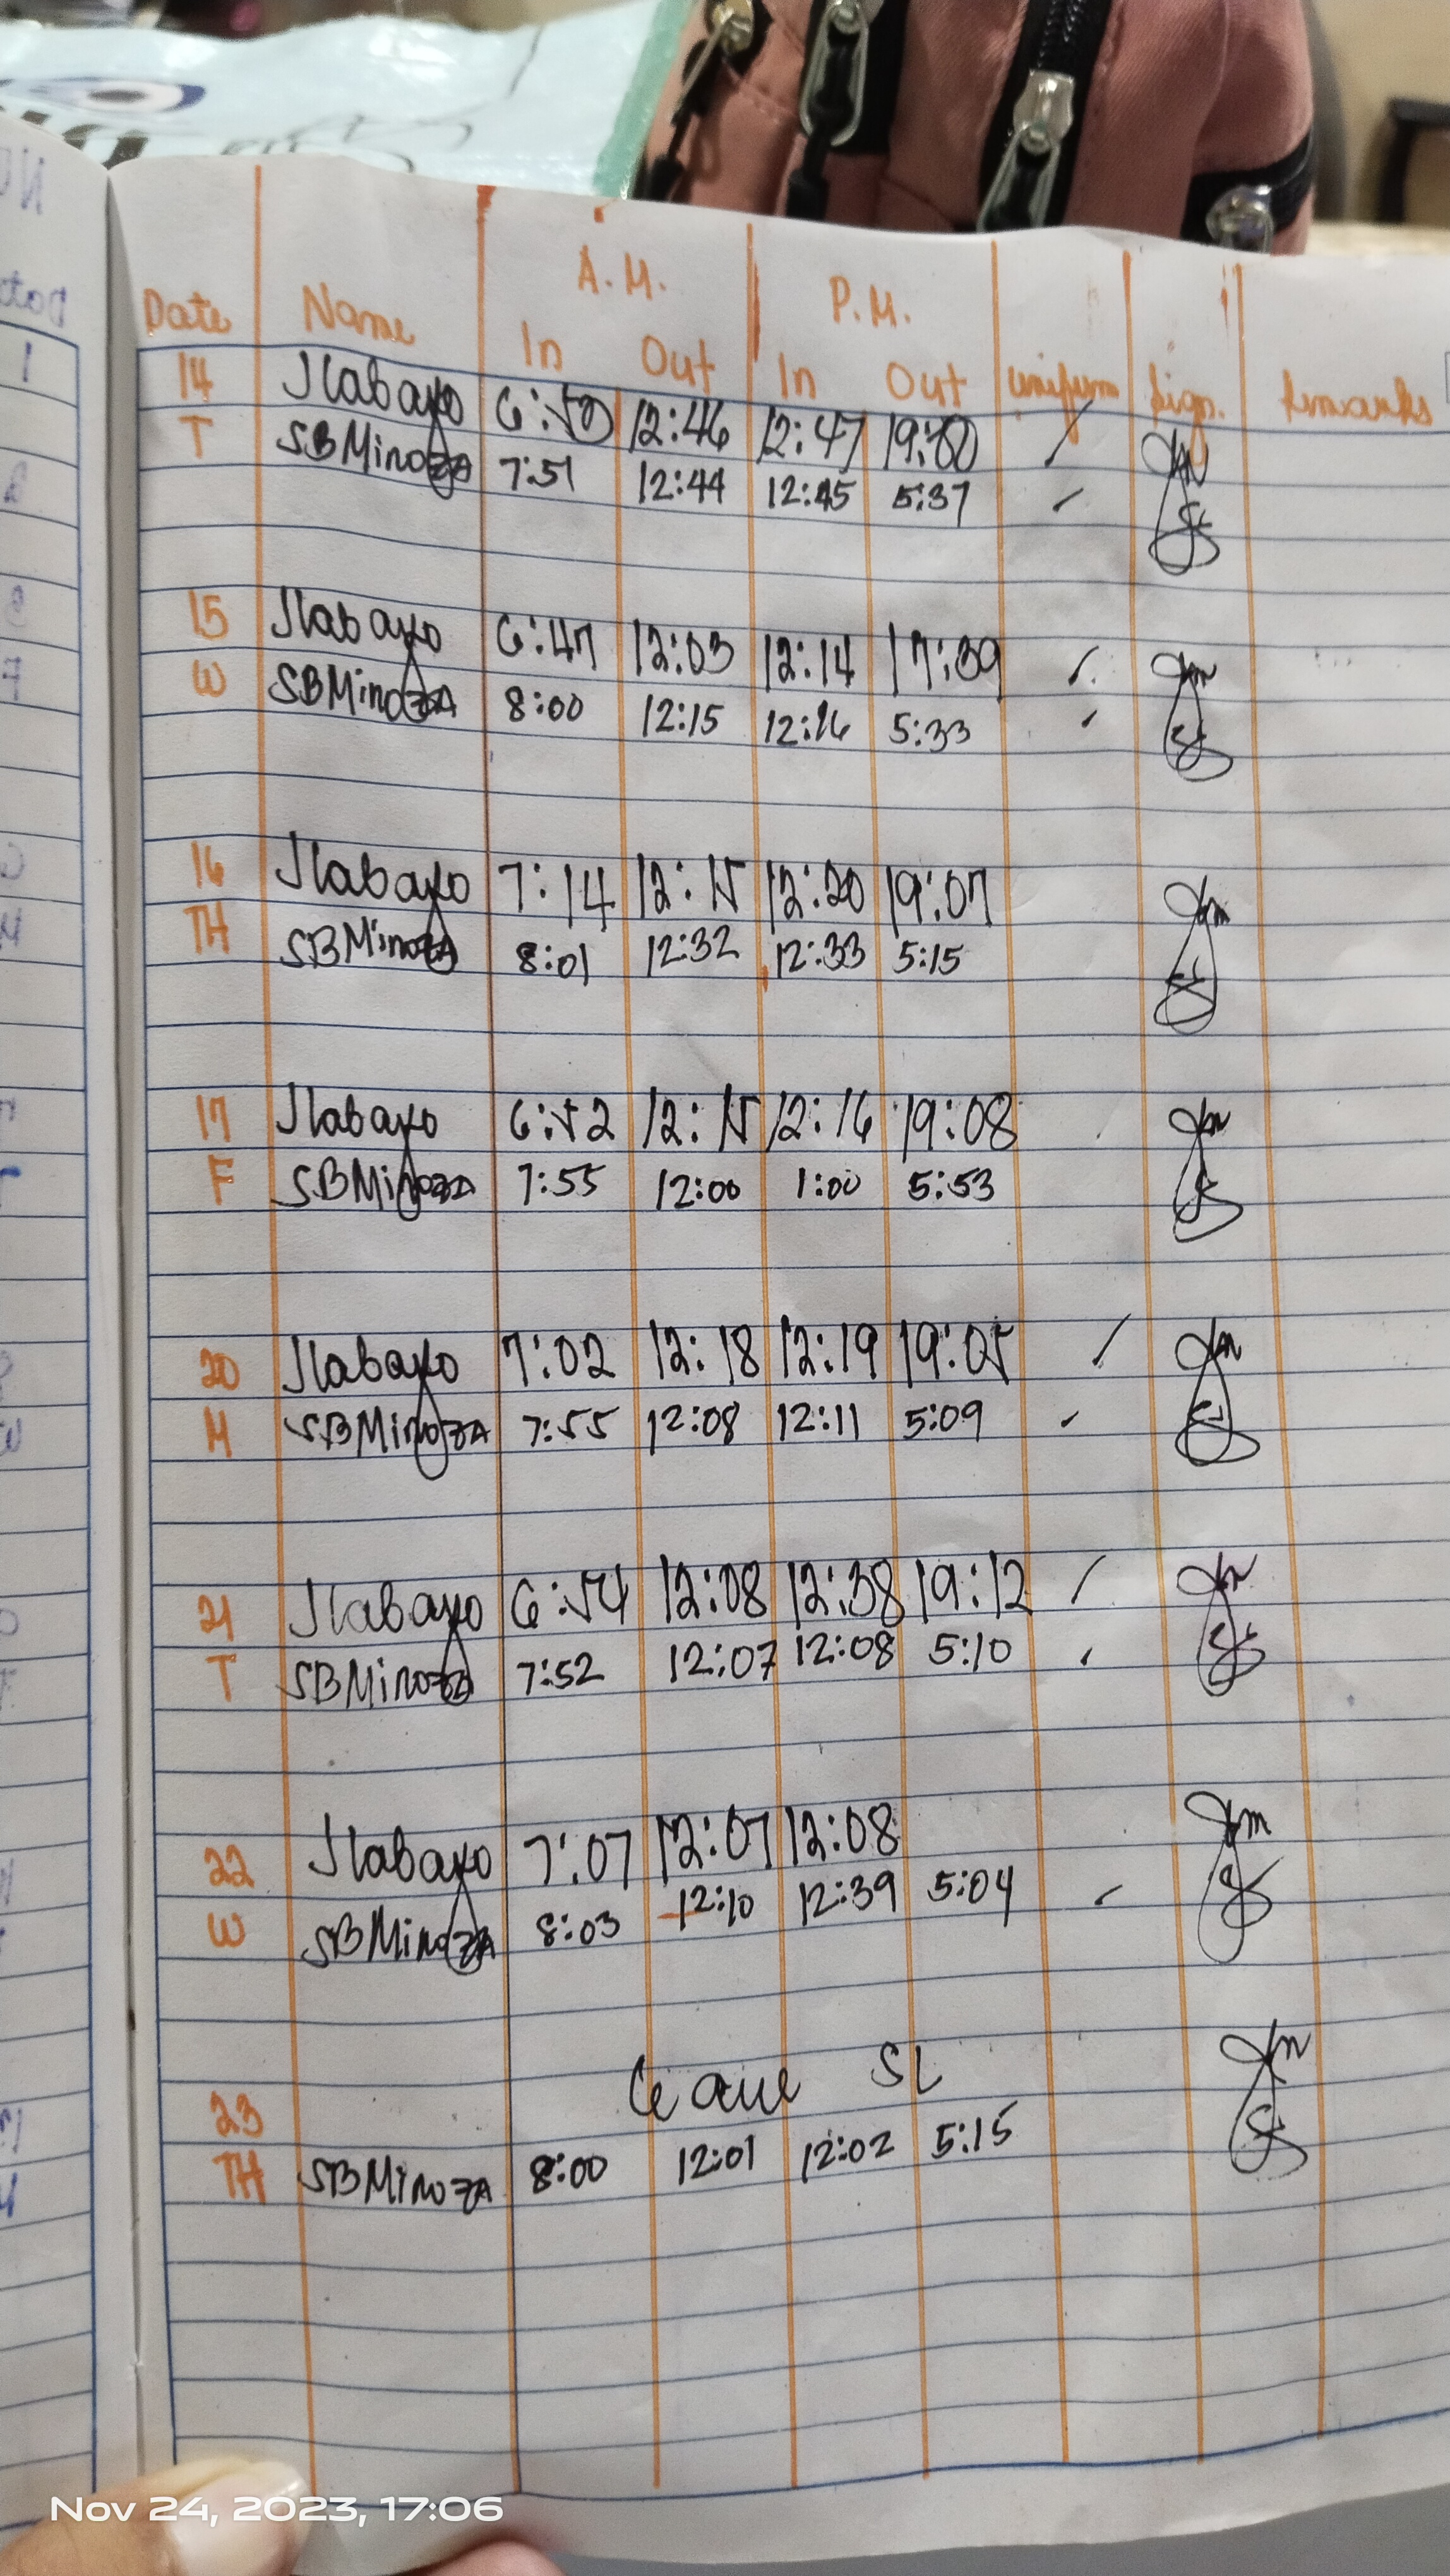 A.M. P.M.
Date Name In Out In Out Uniform Sign. Remarks
14 Jlabayo 6:50 12:46 12:47
T SBMinoza 7:51 12:44 12:45 5:37
15 Jlabayo 6:47 12:03 12:14 17:39
W SBMinoza 8:00 12:15 12:16 5:33
16 Jlabayo 7:14 12:15 12:20 19:07
TH SBMinoza 8:01 12:32 12:33 5:15
17 Jlabayo 6:52 12:15 12:16 19:08
F SBMinoza 7:55 12:00 1:00 5:53
20 Jlabayo 7:02 12:18 12:19 19:05
M SBMinoza 7:55 12:08 12:11 5:09
21 Jlabayo 6:54 12:08 12:38 19:12
T SBMinoza 7:52 12:07 12:08 5:10
22 Jlabayo 7:07 12:07 12:08
W SBMinoza 8:03 12:10 12:39 5:04
23 Leave SL
TH SBMinoza 8:00 12:01 12:02 5:15
Nov 24, 2023, 17:06